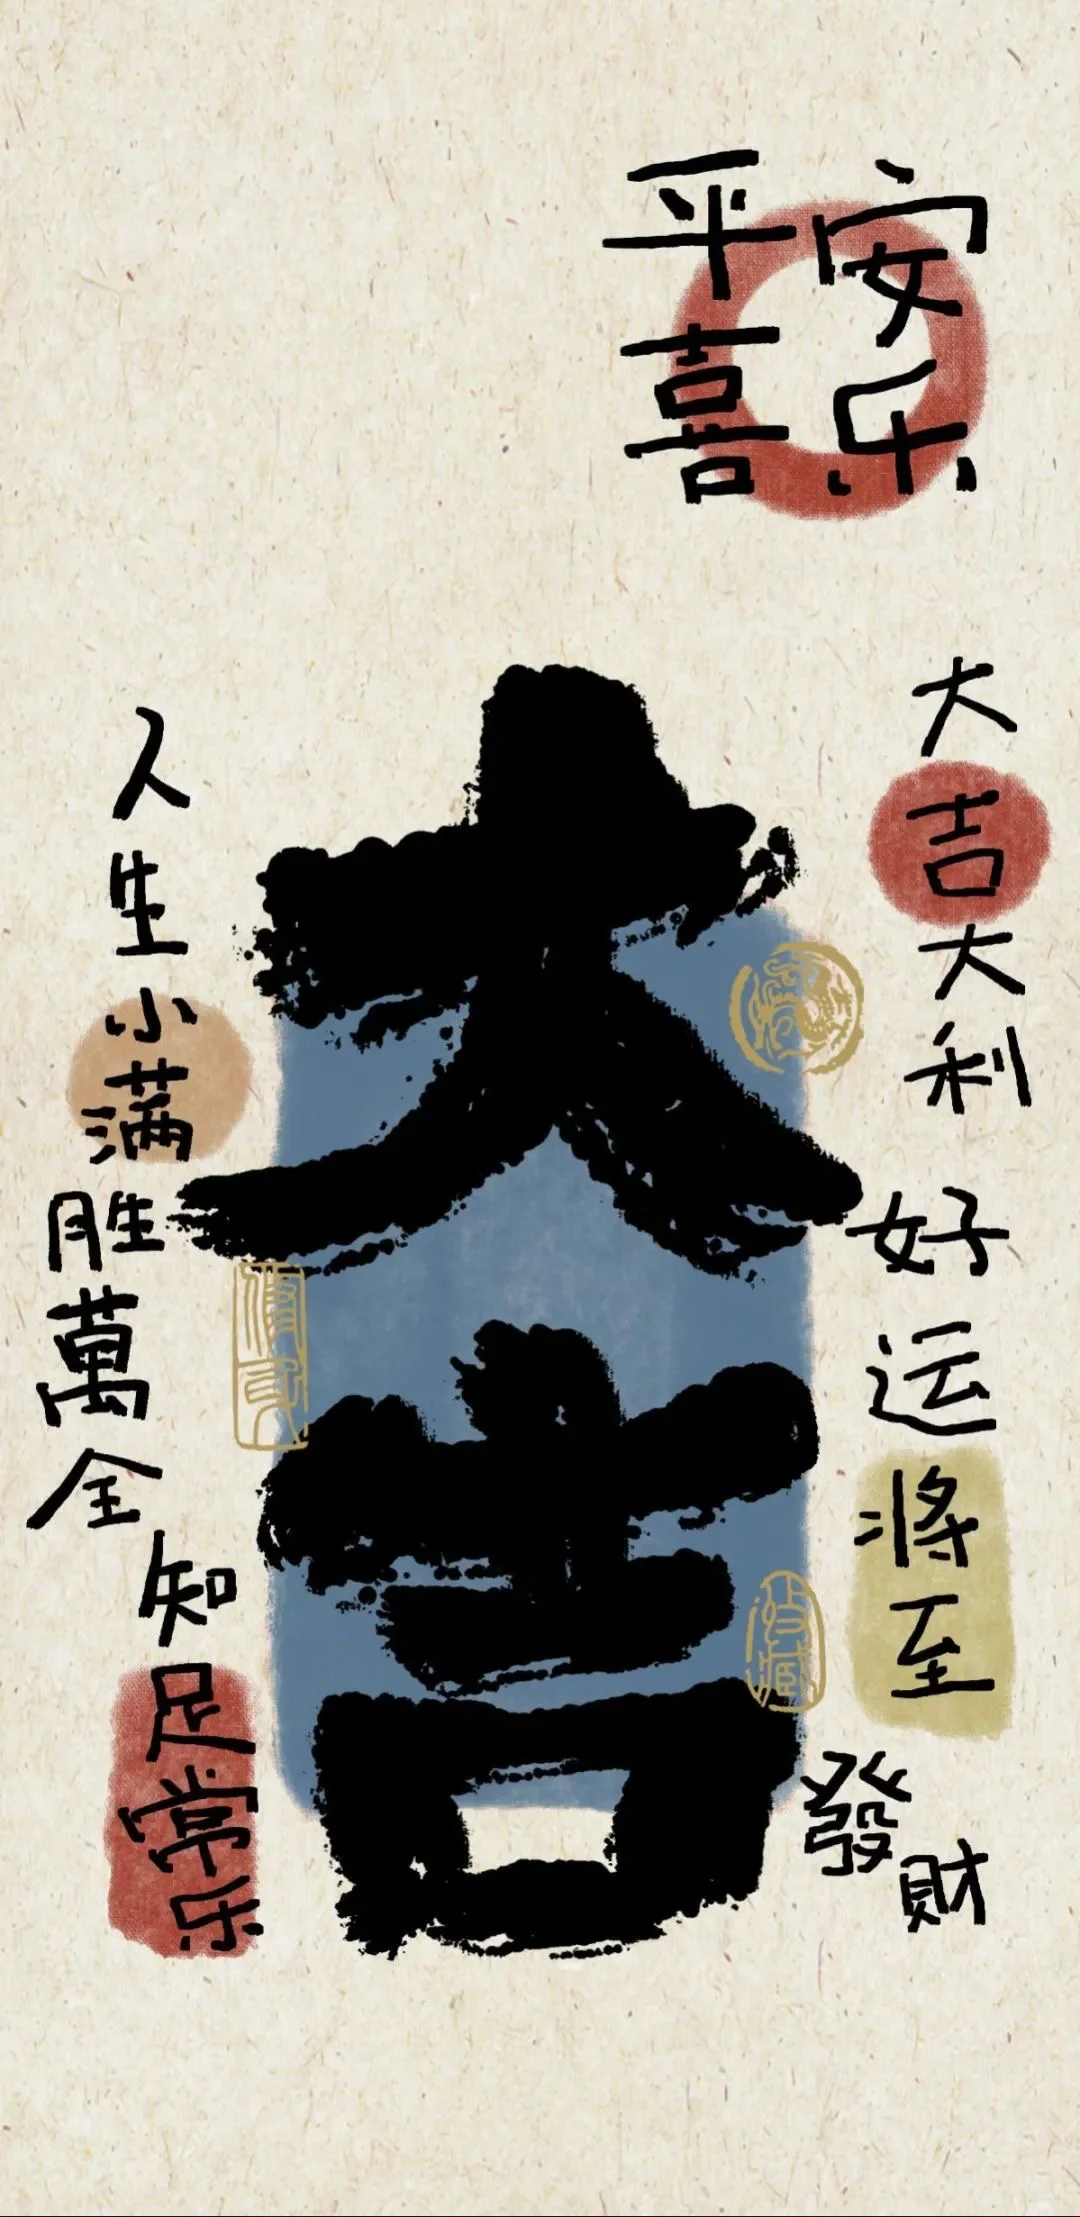 平安
喜乐
大吉
大吉大利
好运将至
發財
人生小满
胜萬全
知足常乐